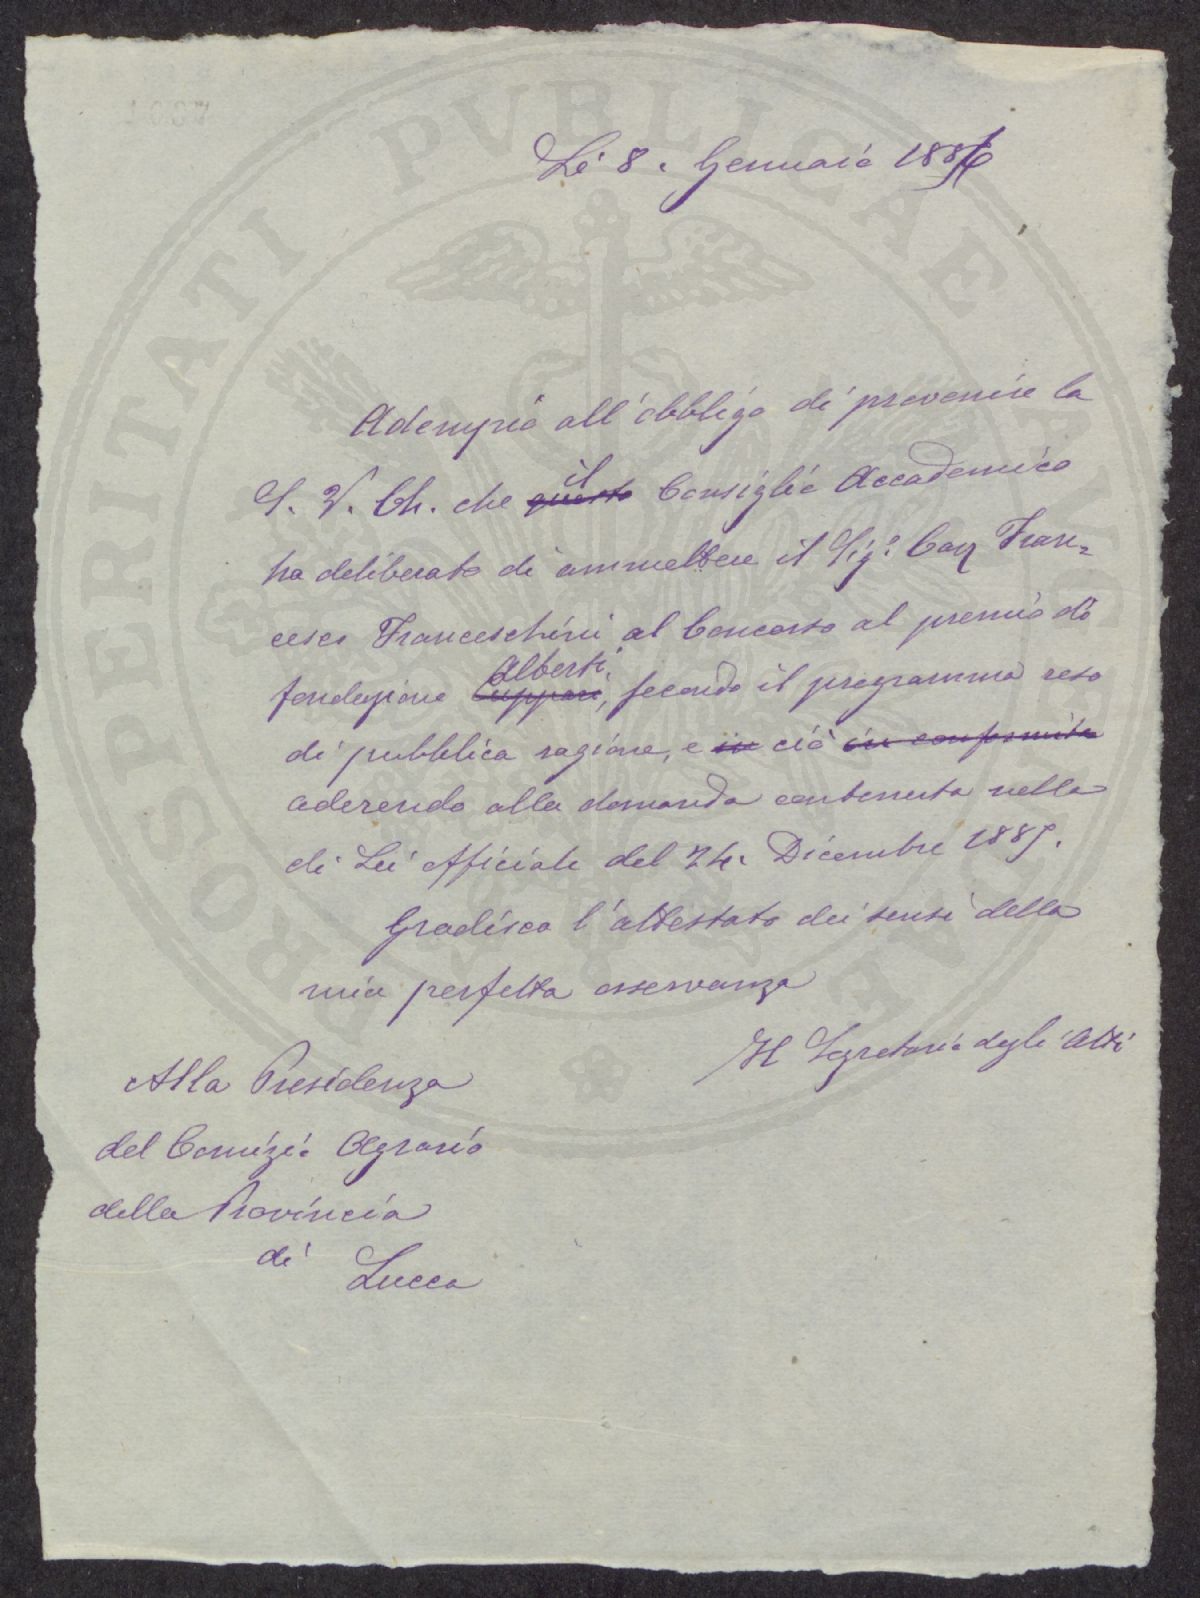 Lì 8. Gennaio 1886
Adempio all'obbligo di prevenire la
il
S. V. Ch. che questo Consiglio Accademico
ha deliberato di ammettere il Sig.o Cav Fran=
cesco Franceschini al Concorso al premio di
Alberti,
fondazione Cuppari, secondo il programma reso
di pubblica ragione, e in ciò in conformità
aderendo alla domanda contenuta nella
di Lei Officiale del 24. Dicembre 1885.
Gradisca l'attestato dei sensi della
mia perfetta osservanza
Il Segretario degli Atti
Alla Presidenza
del Comizio Agrario
della Provincia
di Lucca
PROSPERITATI PVBLICAE AVGENDAE